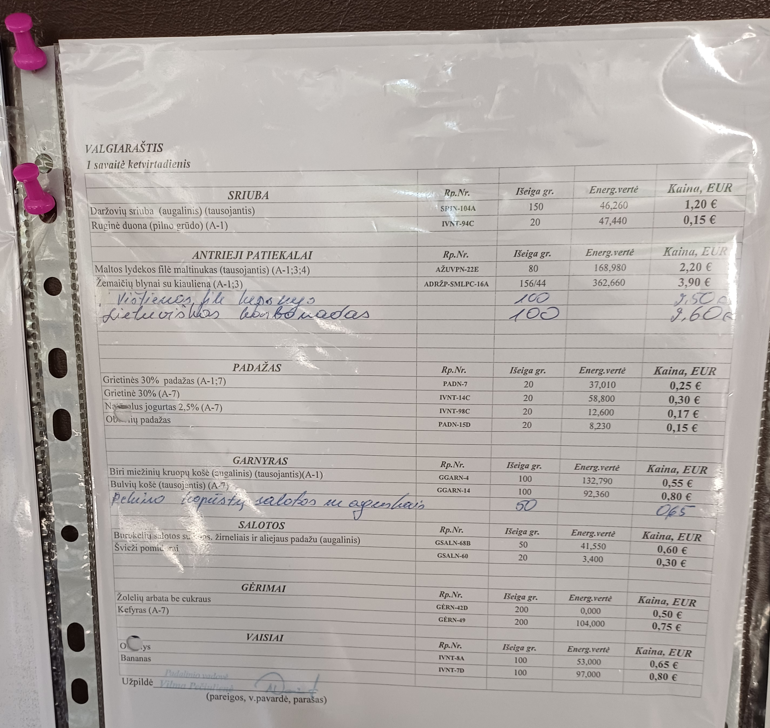 VALGIARAŠTIS
I savaitė ketvirtadienis
SRIUBA Rp.Nr. Išeiga gr. Energ.vertė Kaina, EUR
Daržovių sriuba (augalinis) (tausojantis) 150 46,260 1,20 €
Ruginė duona (pilno grūdo) (A-1) IVNT-94C 20 47,440 0,15 €
ANTRIEJI PATIEKALAI Rp.Nr. Išeiga gr. Energ.vertė Kaina, EUR
Maltos lydekos filė maltinukas (tausojantis) (A-1;3;4) AŽUVPN-22E 80 168,980 2,20 €
Žemaičių blynai su kiauliena (A-1;3) ADRŽP-SMLPC-16A 156/44 362,660 3,90 €
Vištienos file kepsnys 100 2,50
Lietuviškas karbonadas 100 2,60
PADAŽAS Rp.Nr. Išeiga gr. Energ.vertė Kaina, EUR
Grietinės 30% padažas (A-1;7) PADN-7 20 37,010 0,25 €
Grietinė 30% (A-7) IVNT-14C 20 58,800 0,30 €
jogurtas 2,5% (A-7) IVNT-98C 20 12,600 0,17 €
padažas PADN-15D 20 8,230 0,15 €
GARNYRAS Rp.Nr. Išeiga gr. Energ.vertė Kaina, EUR
Biri miežinių kruopų košė (augalinis) (tausojantis)(A-1) GGARN-4 100 132,790 0,55 €
Bulvių košė (tausojantis) (A-7) GGARN-14 100 92,360 0,80 €
Pekino kopūstų salotos su agurkais 50 0,65
SALOTOS Rp.Nr. Išeiga gr. Energ.vertė Kaina, EUR
Burokėlių salotos žirneliais ir aliejaus padažu (augalinis) GSALN-68B 50 41,550 0,60 €
Švieži GSALN-60 20 3,400 0,30 €
GĖRIMAI Rp.Nr. Išeiga gr. Energ.vertė Kaina, EUR
Žolelių arbata be cukraus GĖRN-42D 200 0,000 0,50 €
Kefyras (A-7) GĖRN-49 200 104,000 0,75 €
VAISIAI Rp.Nr. Išeiga gr. Energ.vertė Kaina, EUR
IVNT-8A 100 53,000 0,65 €
Bananas IVNT-7D 100 97,000 0,80 €
Užpildė
(pareigos, v.pavardė, parašas)